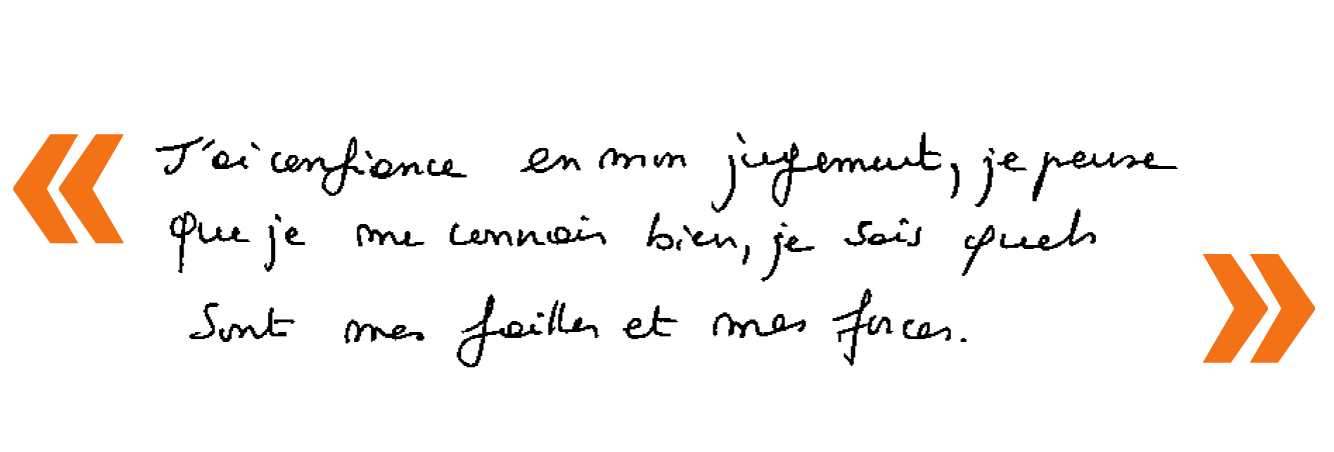 « J'ai confiance en mon jugement, je pense
que je me connais bien, je sais quels
sont mes failles et mes forces. »